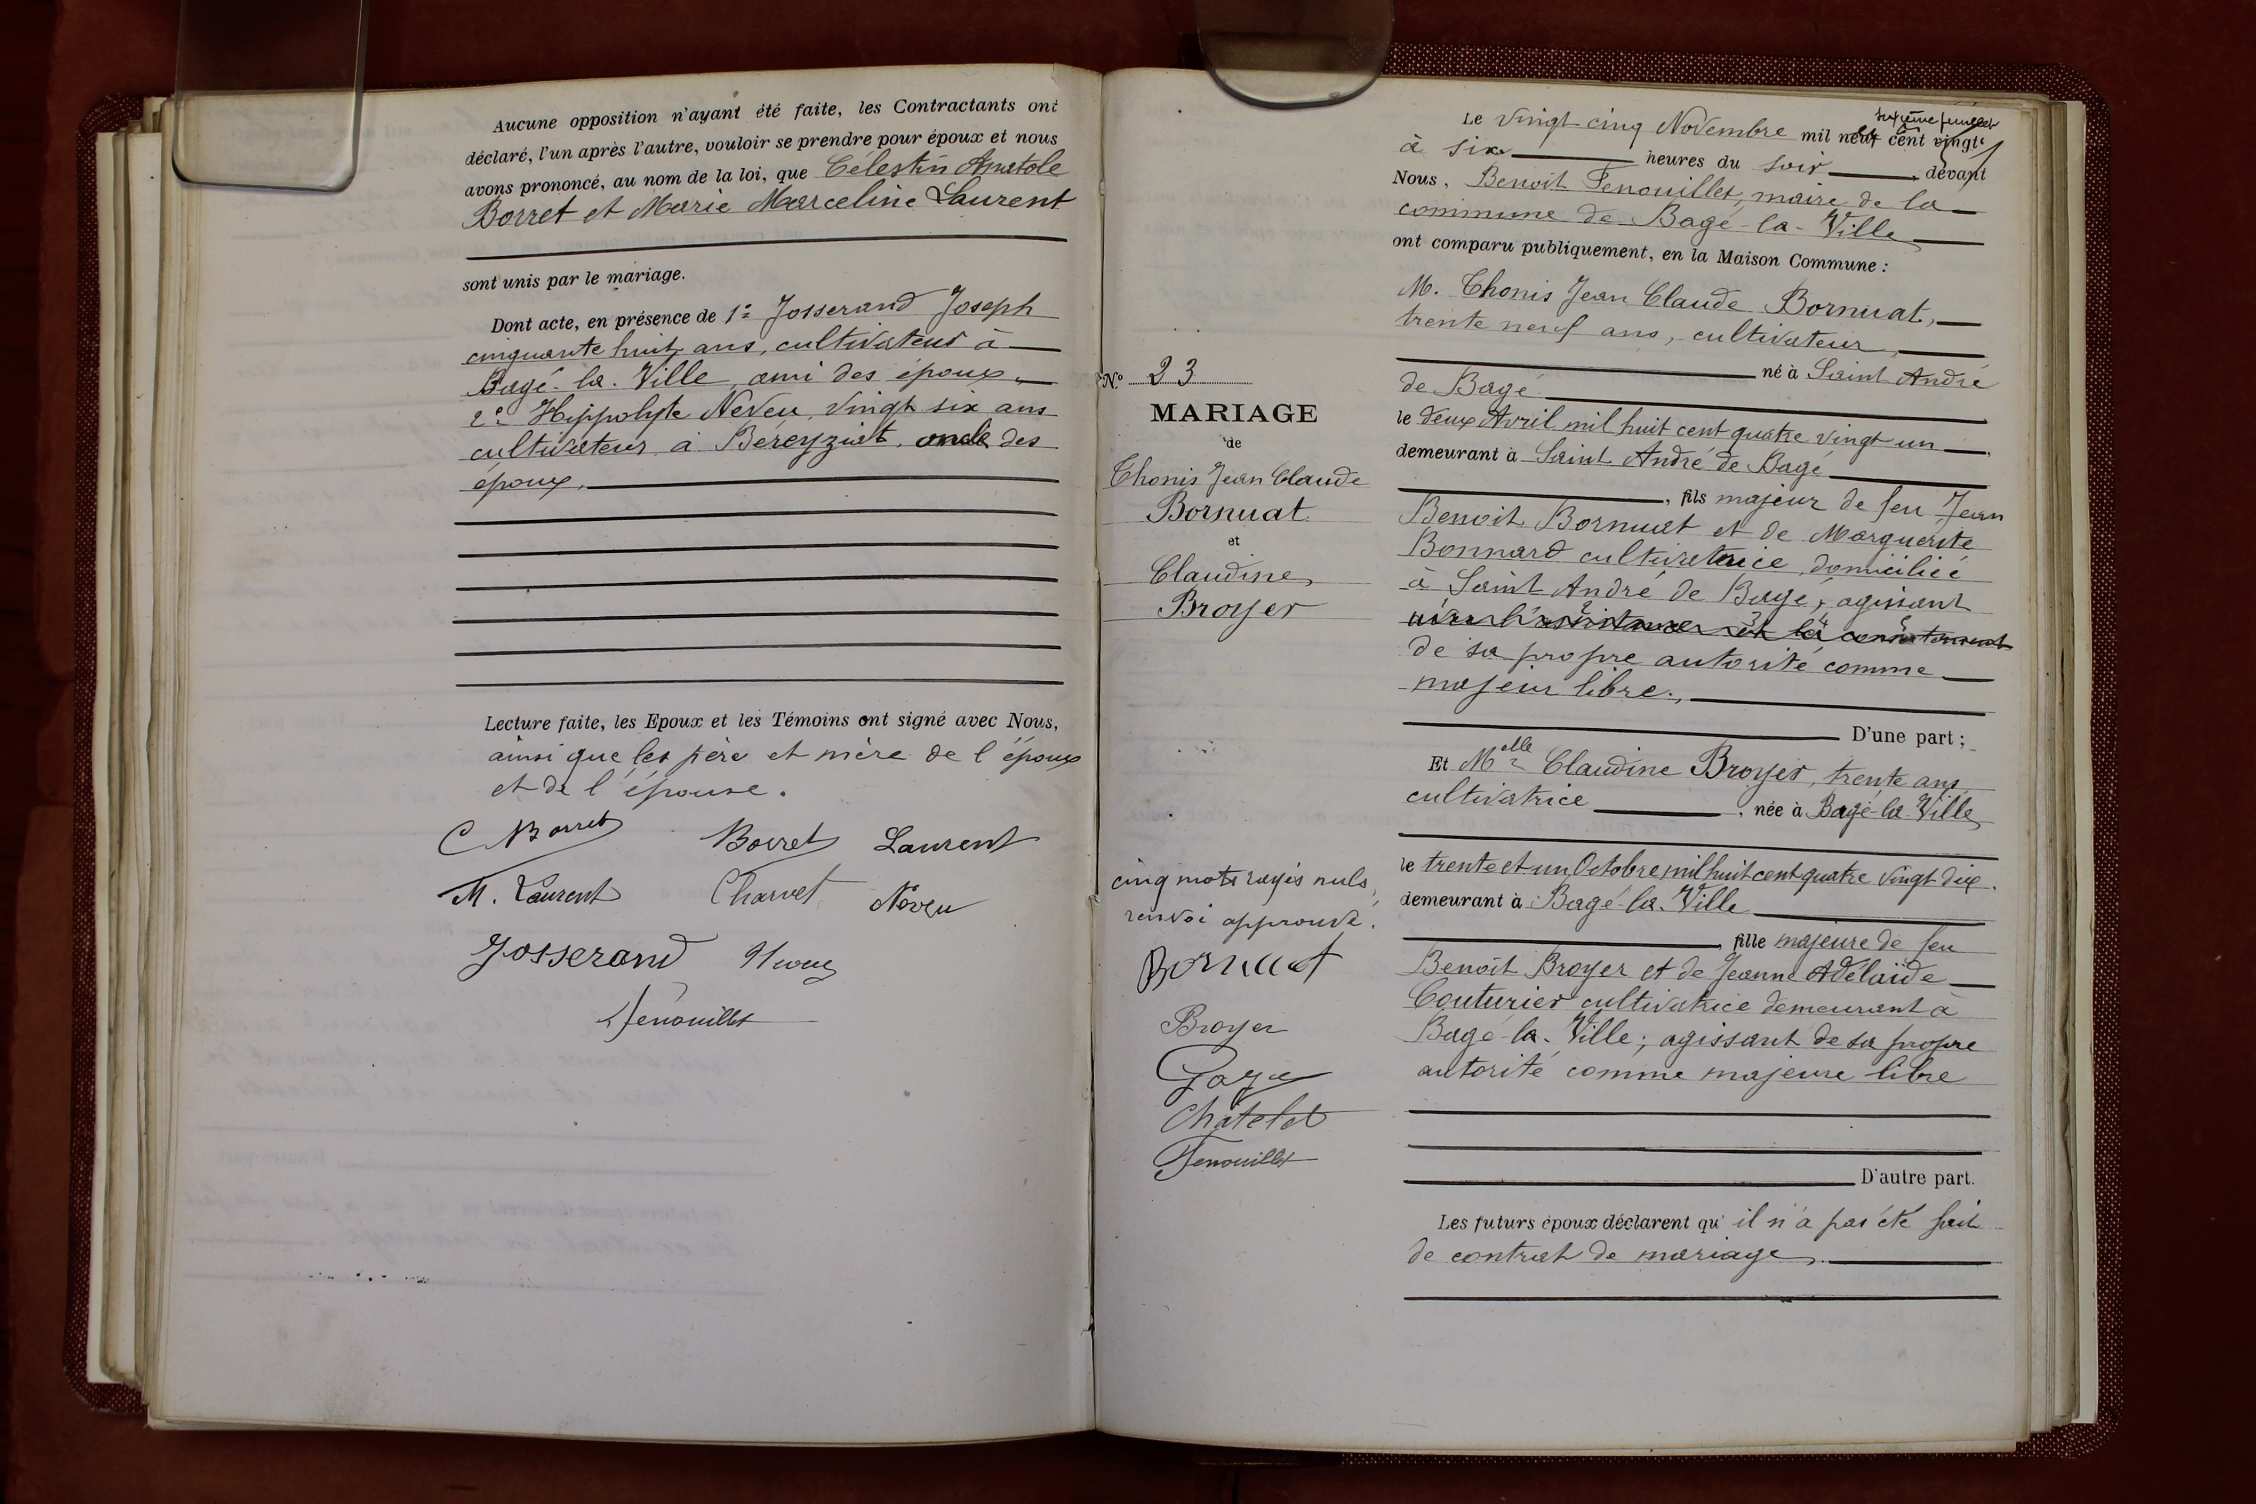 Aucune opposition n'ayant été faite, les Contractants ont
déclaré, l'un après l'autre, vouloir se prendre pour époux et nous
avons prononcé, au nom de la loi, que Célestin Anatole
Borret et Marie Marceline Laurent
sont unis par le mariage.
Dont acte, en présence de 1° Josserand Joseph
cinquante huit ans, cultivateur à
Bagé-la-Ville, ami des époux,
2° Hippolyte Neveu, vingt six ans
cultivateur à Béreyziat, oncle des
époux.
Lecture faite, les Epoux et les Témoins ont signé avec Nous,
ainsi que les père et mère de l'époux
et de l'épouse.
C Borret Borret Laurent
M. Laurent Charvet Neveu
Josserand
Fenouillet
N° 23
MARIAGE
de
Thonis Jean Claude
Bornuat
et
Claudine
Broyer
cinq mots rayés nuls,
renvoi approuvé.
Bornuat
Broyer
Chatelet
Fenouillet
sixième feuillet
Le vingt cinq Novembre mil neuf cent vingt
à six heures du soir, devant
Nous, Benoit Fenouillet, maire de la
commune de Bagé-la-Ville
ont comparu publiquement, en la Maison Commune :
M. Thonis Jean Claude Bornuat,
trente neuf ans, cultivateur,
né à Saint André
de Bagé
le deux Avril mil huit cent quatre vingt un,
demeurant à Saint André de Bagé
, fils majeur de feu Jean
Benoit Bornuat et de Marguerite
Bonnard cultivatrice, domiciliée
à Saint André de Bagé, agissant
avec l'assistance et le consentement
de sa propre autorité comme
majeur libre.,
D'une part ;
Et Melle Claudine Broyer, trente ans,
cultivatrice, née à Bagé-la-Ville
le trente et un Octobre mil huit cent quatre vingt dix.
demeurant à Bagé-la-Ville
, fille majeure de feu
Benoit Broyer et de Jeanne Adélaïde
Couturier cultivatrice demeurant à
Bagé-la-Ville ; agissant de sa propre
autorité comme majeure libre
D'autre part.
Les futurs époux déclarent qu'il n'a pas été fait
de contrat de mariage.